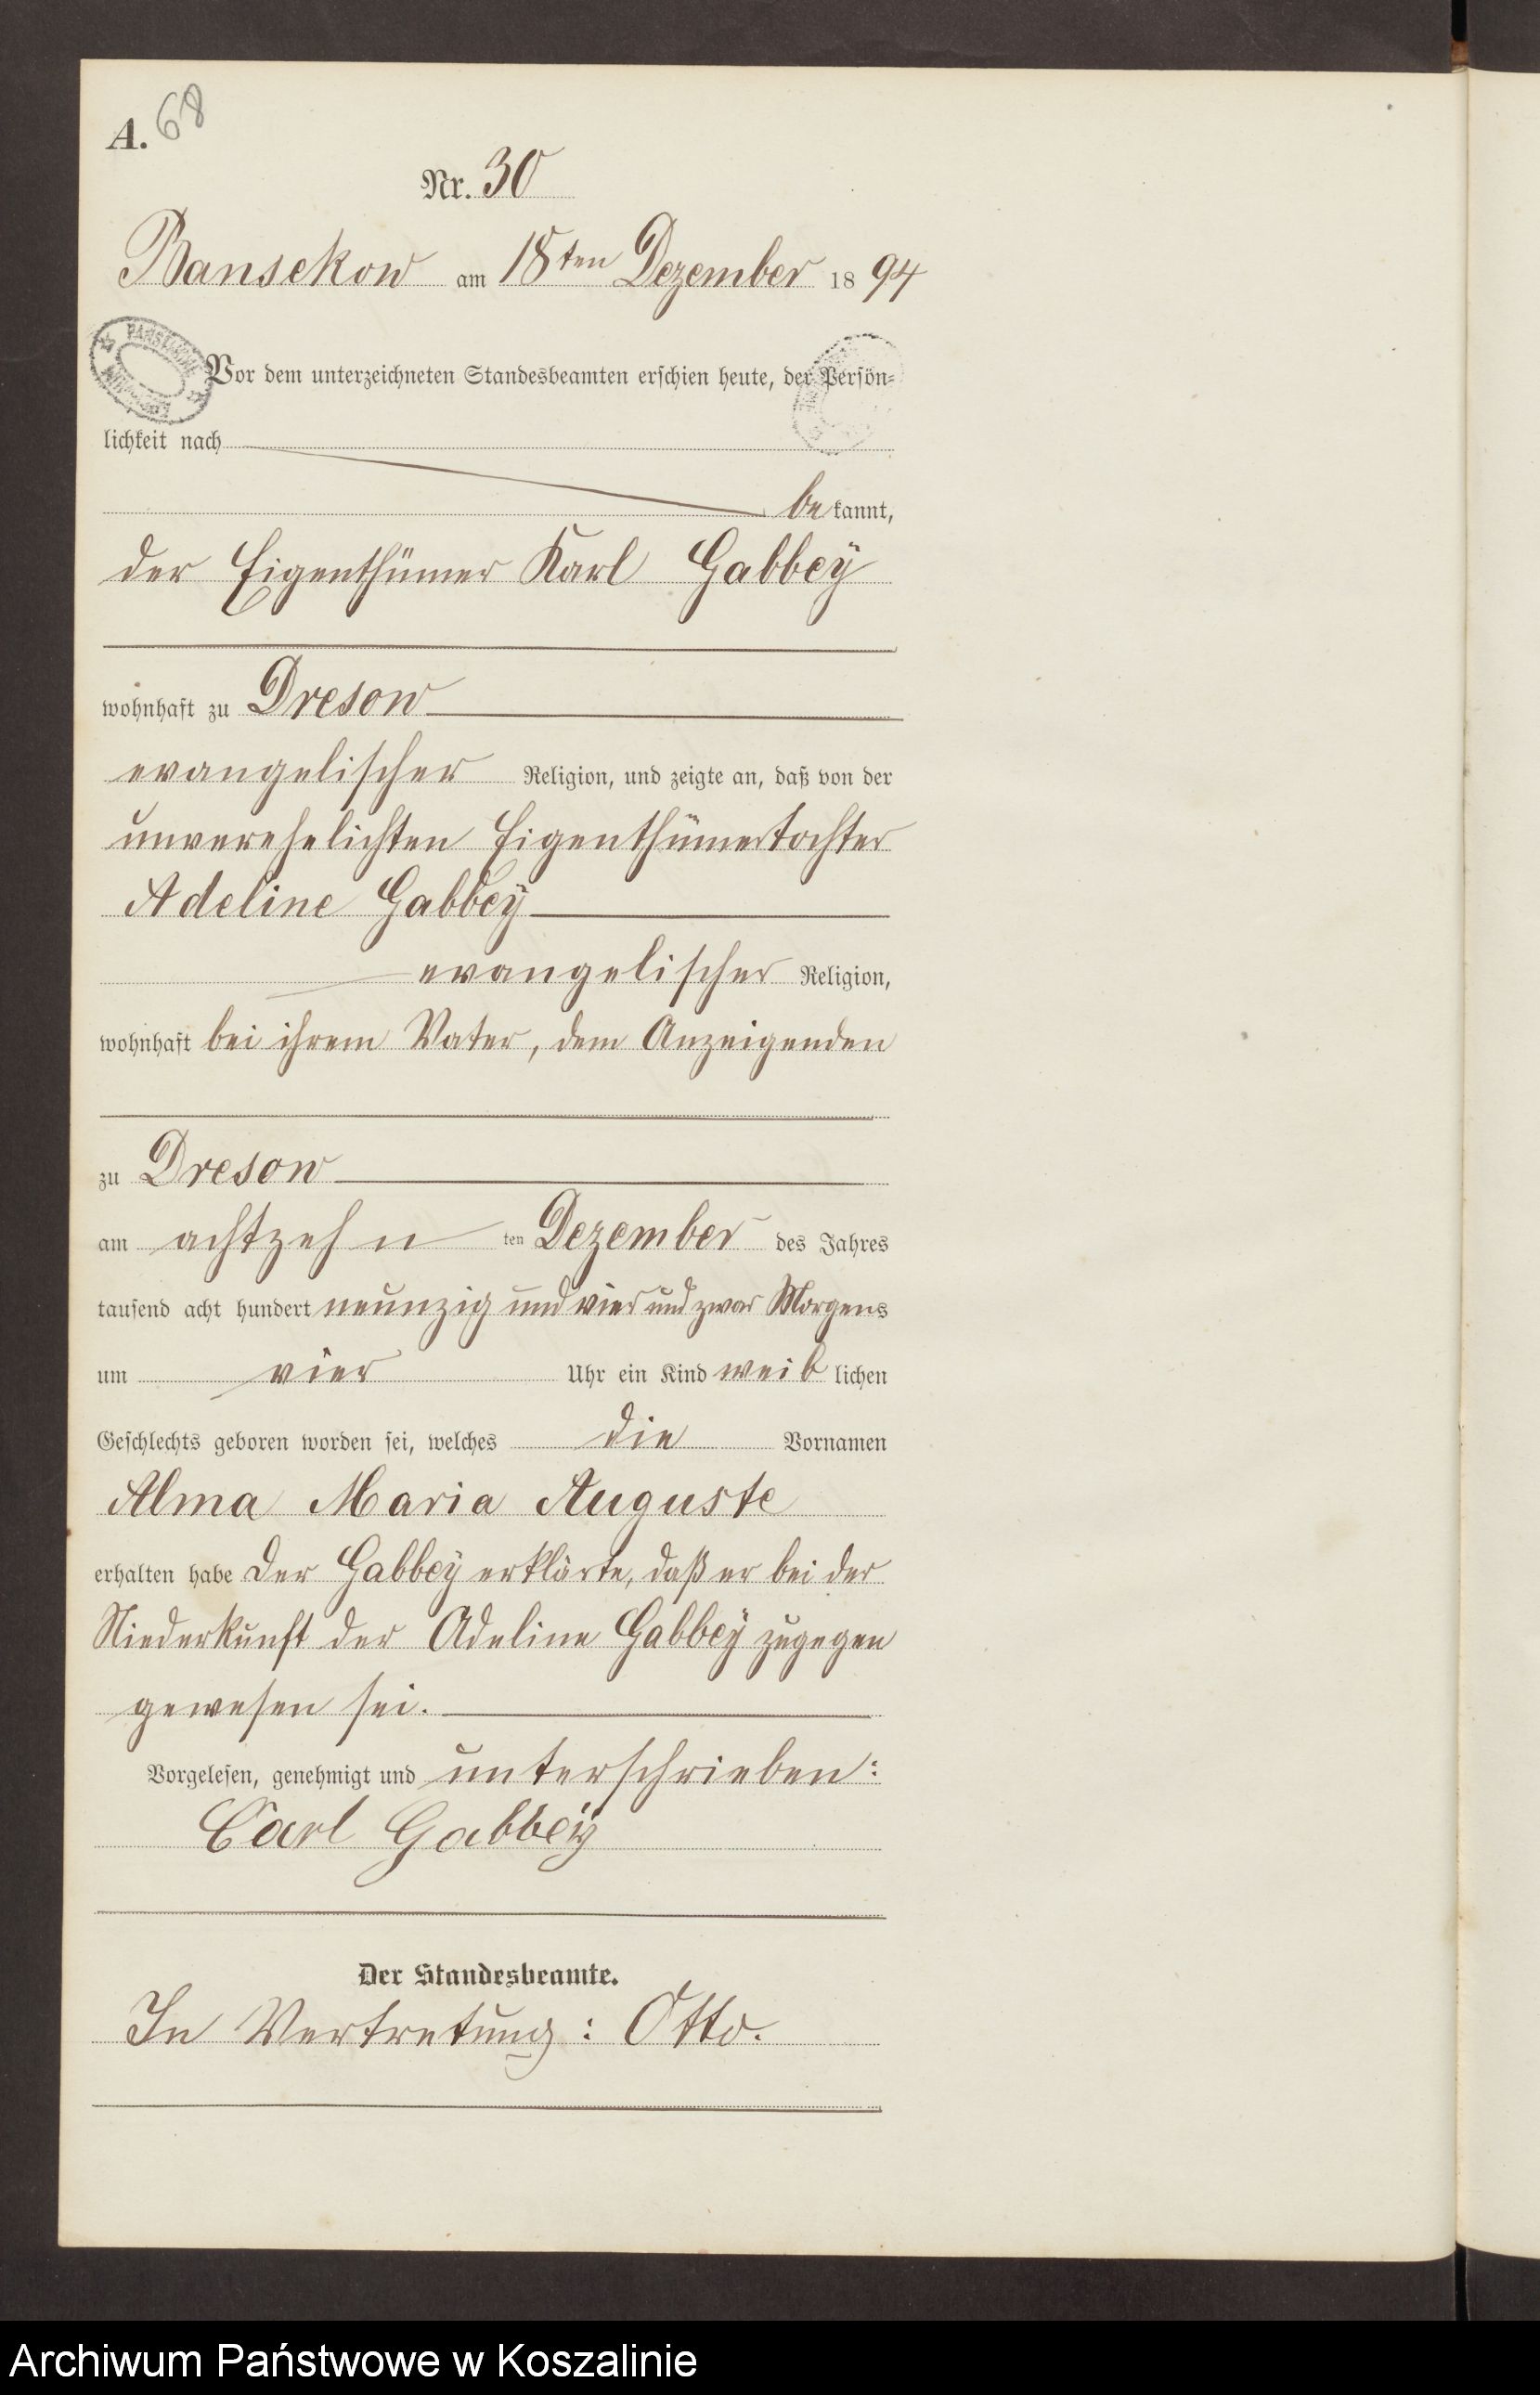 A. 68
Nr. 30
Bansekow am 18ten Dezember 1894
Vor dem unterzeichneten Standesbeamten erschien heute, der Persön-
lichkeit nach
be kannt,
der Eigenthümer Karl Gabbey
wohnhaft zu Dresow
evangelischer Religion, und zeigte an, daß von der
unverehelichten Eigenthümertochter
Adeline Gabbey
evangelischer Religion,
wohnhaft bei ihrem Vater, dem Anzeigenden
zu Dresow
am achtzehn ten Dezember des Jahres
tausend acht hundert neunzig und vier und zwar Morgens
um vier Uhr ein Kind weib lichen
Geschlechts geboren worden sei, welches die Vornamen
Alma Maria Auguste
erhalten habe Der Gabbey erklärte, daß er bei der
Niederkunft der Adeline Gabbey zugegen
gewesen sei.
Vorgelesen, genehmigt und unterschrieben:
Carl Gabbey
Der Standesbeamte.
In Vertretung: Otto.
Archiwum Państwowe w Koszalinie